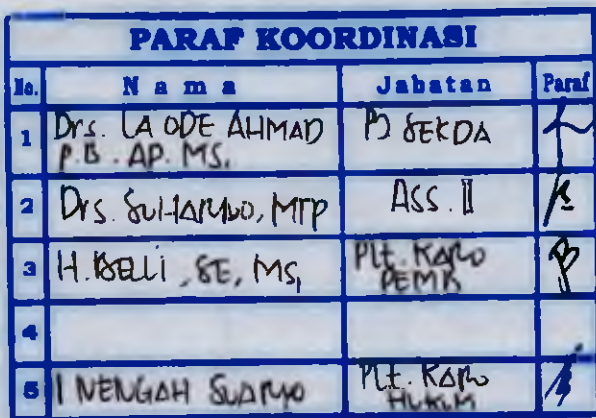 PARAF KOORDINASI
No. Nama Jabatan Paraf
1 Drs. LA ODE AHMAD P.B. AP. MS, Pj SEKDA
2 Drs. SUHARDO, MTP ASS. II
3 H. BELLI, SE, MS, Plt. KARO PEMB
4
5 I NENGAH SUARYO Plt. KARO HUKUM